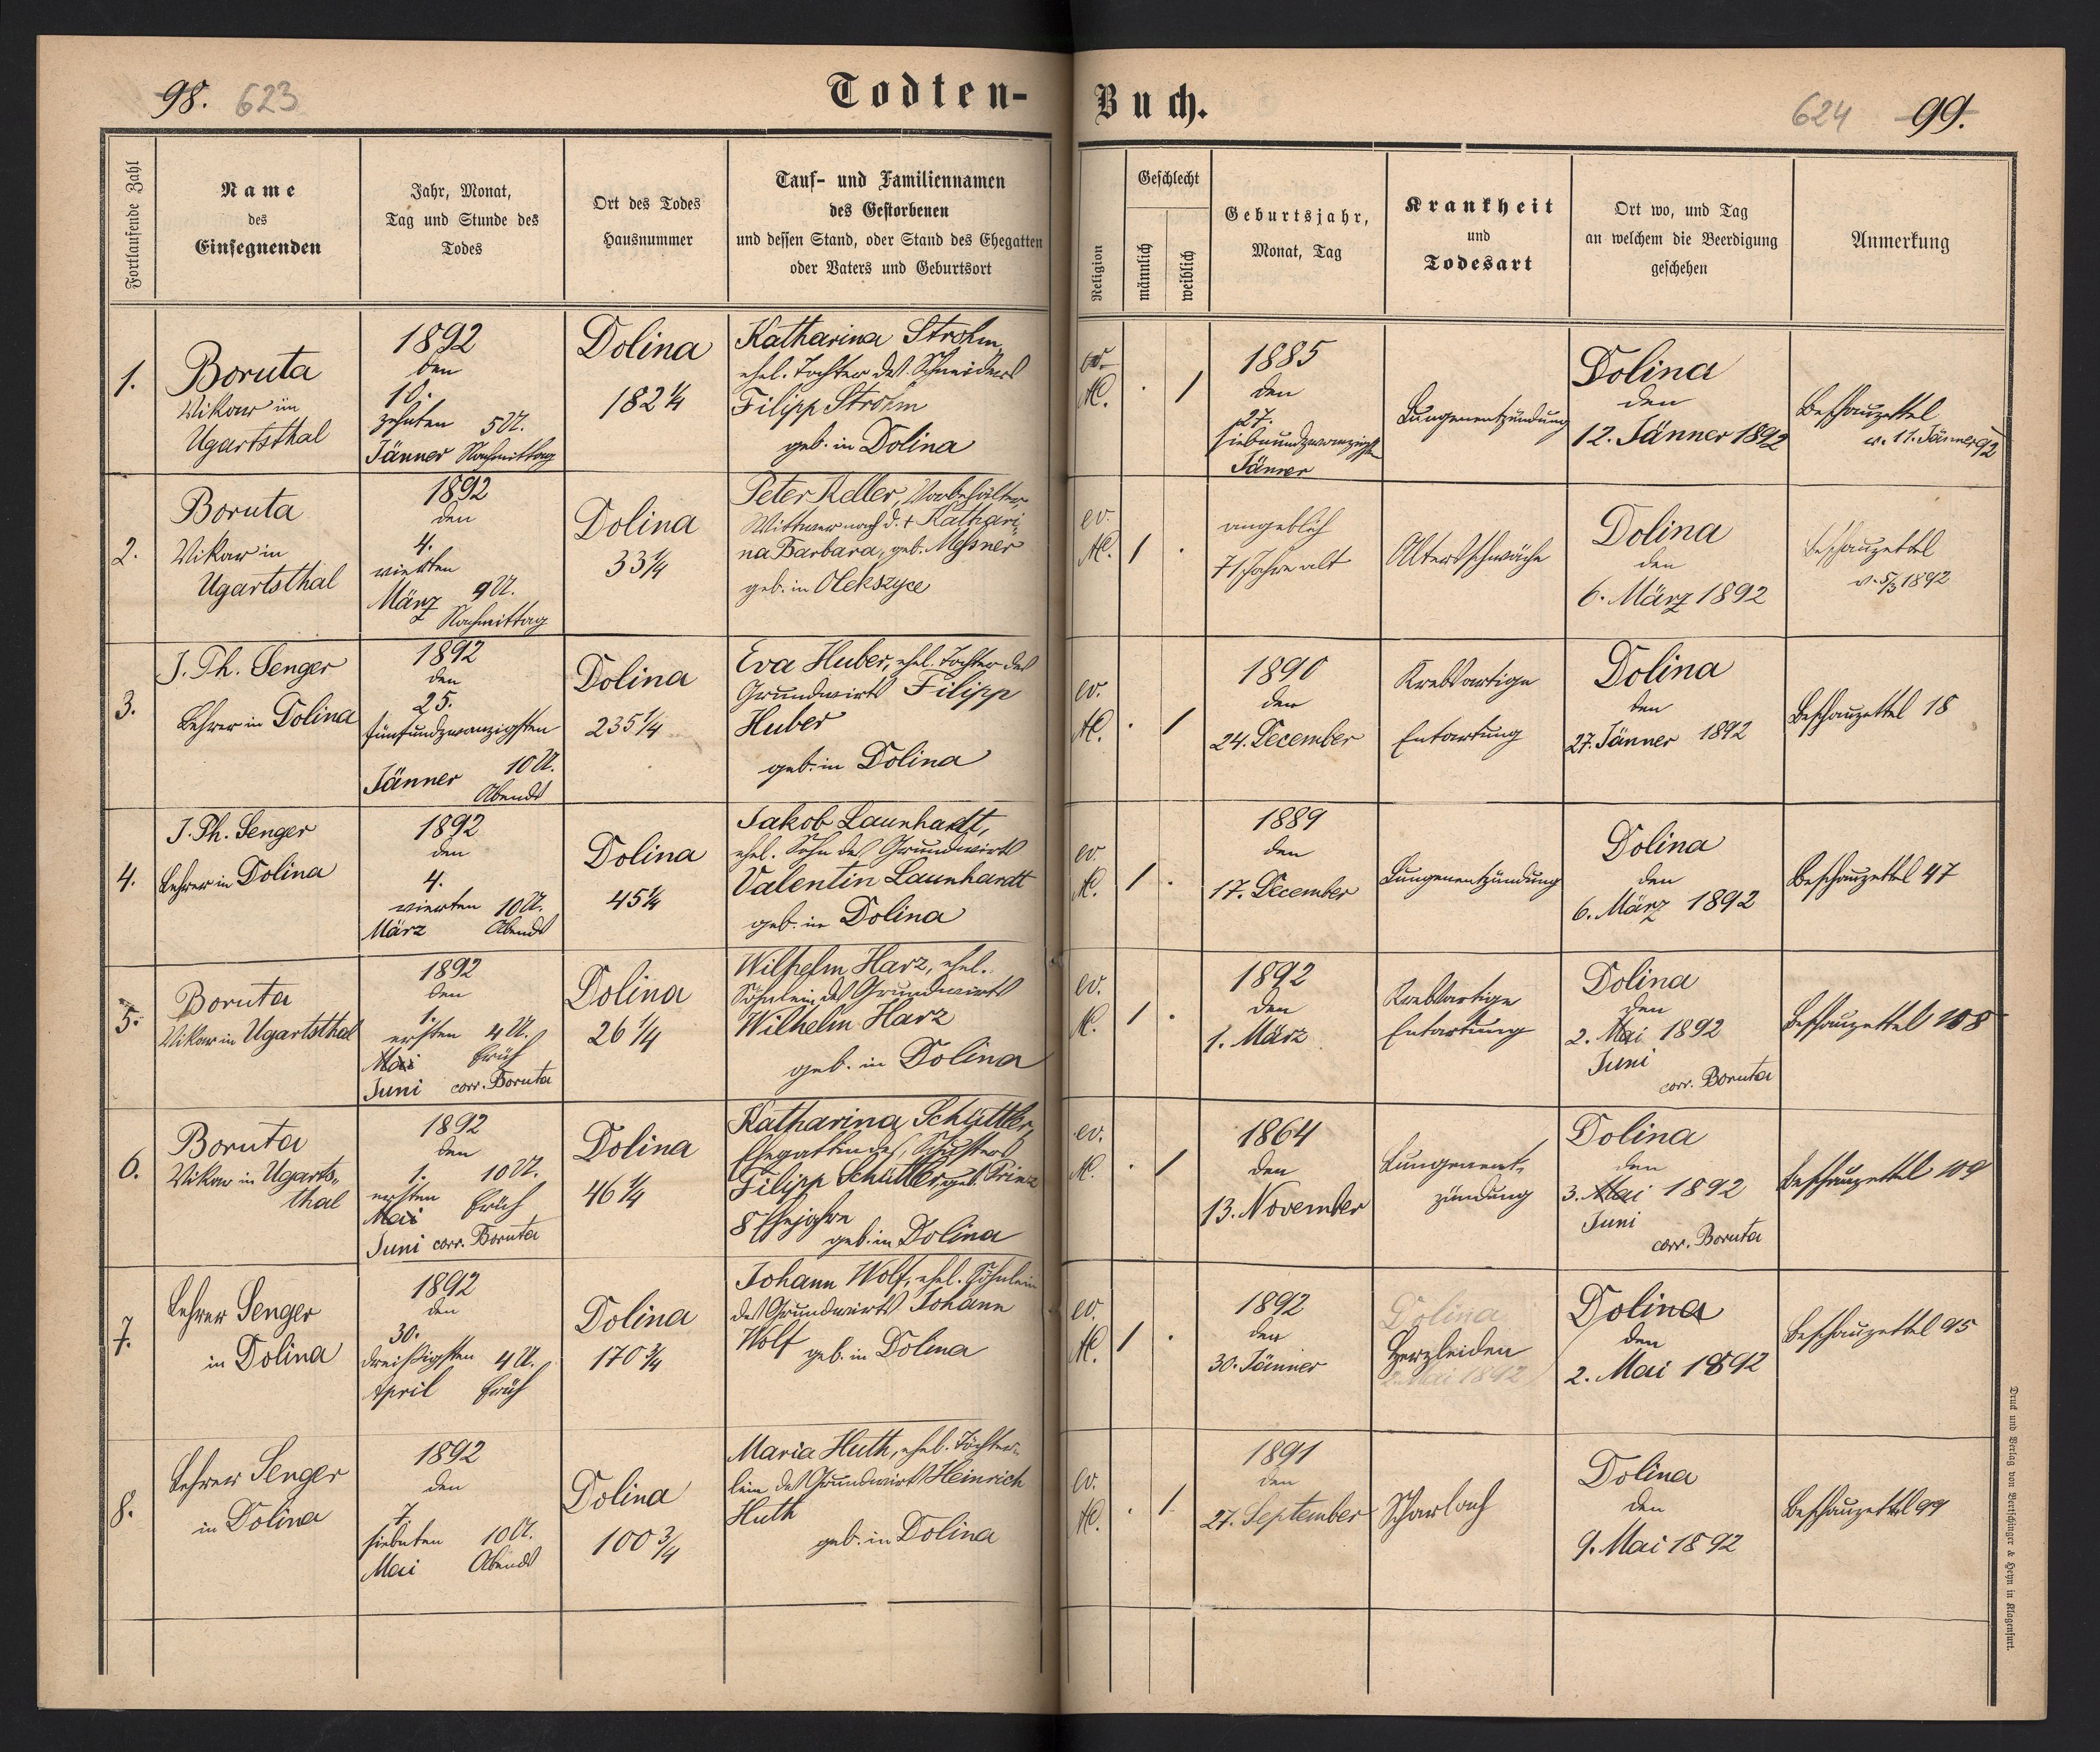 98. 623
Todten-
Buch.
624 99.
Fortlaufende Zahl
Name
des
Einsegnenden
Jahr, Monat,
Tag und Stunde des
Todes
Ort des Todes
Hausnummer
Tauf- und Familiennamen
des Gestorbenen
und dessen Stand, oder Stand des Ehegatten
oder Vaters und Geburtsort
Religion
Geschlecht
männlich
weiblich
Geburtsjahr,
Monat, Tag
Krankheit
und
Todesart
Ort wo, und Tag
an welchem die Beerdigung
geschehen
Anmerkung
1.
Boruta
Vikar im
Ugartsthal
1892
den
10.
zehnten 5 U.
Jänner Nachmittag
Dolina
182 1/4
Katharina Strohm,
ehel. Tochter des Schneiders
Filipp Strohm
geb. in Dolina
ev.
A.C.
. /
1885
den
27.
siebenundzwanzigst
Jänner
Lungenentzündung
Dolina
den
12. Jänner 1892
Beschauzettel
v. 11. Jänner 92
2.
Boruta
Vikar in
Ugartsthal
1892
den
4.
vierten
März 9 U.
Nachmittag
Dolina
33 1/4
Peter Keller, Vorbehälter,
Wittwer nach d. † Kathari-
na Barbara, geb. Messner
geb. in Olekszyce
ev.
A.C.
/ .
angeblich
71 Jahre alt
Altersschwäche
Dolina
den
6. März 1892
Beschauzettel
v. 5/3 1892
3.
J. Ph. Senger
Lehrer in Dolina
1892
den
25.
fünfundzwanzigsten
10 U.
Jänner Abends
Dolina
235 1/4
Eva Huber, ehel. Tochter des
Grundwirts Filipp
Huber
geb. in Dolina
ev.
A.C.
. /
1890
den
24. December
Krebsartige
Entartung
Dolina
den
27. Jänner 1892
Beschauzettel 18
4.
J. Ph. Senger
Lehrer in Dolina
1892
den
4.
vierten 10 U.
März Abends
Dolina
45 1/4
Jakob Launhardt,
ehel. Sohn des Grundwirts
Valentin Launhardt
geb. in Dolina
ev.
A.C.
/ .
1889
den
17. December
Lungenentzündung
Dolina
den
6. März 1892
Beschauzettel 47
5.
Boruta
Vikar in Ugartsthal
1892
den
1.
ersten 4 U.
Mai früh
Juni corr. Boruta
Dolina
26 1/4
Wilhelm Harz, ehel.
Söhnlein des Grundwirts
Wilhelm Harz
geb. in Dolina
ev.
A.C.
/ .
1892
den
1. März
Krebsartige
Entartung
Dolina
den
2. Mai 1892
Juni
corr. Boruta
Beschauzettel 108
6.
Boruta
Vikar in Ugarts-
thal
1892
den
1. 10 U.
ersten
Mai früh
Juni corr. Boruta
Dolina
46 1/4
Katharina Schüttler,
Ehegattin des Schusters
Filipp Schüttler, geb. Prinz
8 Ehejahre
geb. in Dolina
ev.
A.C.
. /
1864
den
13. November
Lungenent-
zündung
Dolina
den
3. Mai 1892
Juni
corr. Boruta
Beschauzettel 109
7.
Lehrer Senger
in Dolina
1892
den
30.
dreißigsten 4 U.
April früh
Dolina
170 3/4
Johann Wolf, ehel. Söhnlein
des Grundwirts Johann
Wolf geb. in Dolina
ev.
A.C.
/ .
1892
den
30. Jänner
Dolina
Herzleiden
2. Mai 1892
Dolina
den
2. Mai 1892
Beschauzettel 95
8.
Lehrer Senger
in Dolina
1892
den
7.
siebenten 10 U.
Mai Abends
Dolina
100 3/4
Maria Huth, ehel. Töchter-
lein des Grundwirts Heinrich
Huth
geb. in Dolina
ev.
A.C.
. /
1891
den
27. September
Scharlach
Dolina
den
9. Mai 1892
Beschauzettel 99
Druck und Verlag von Bertschinger & Heyn in Klagenfurt.